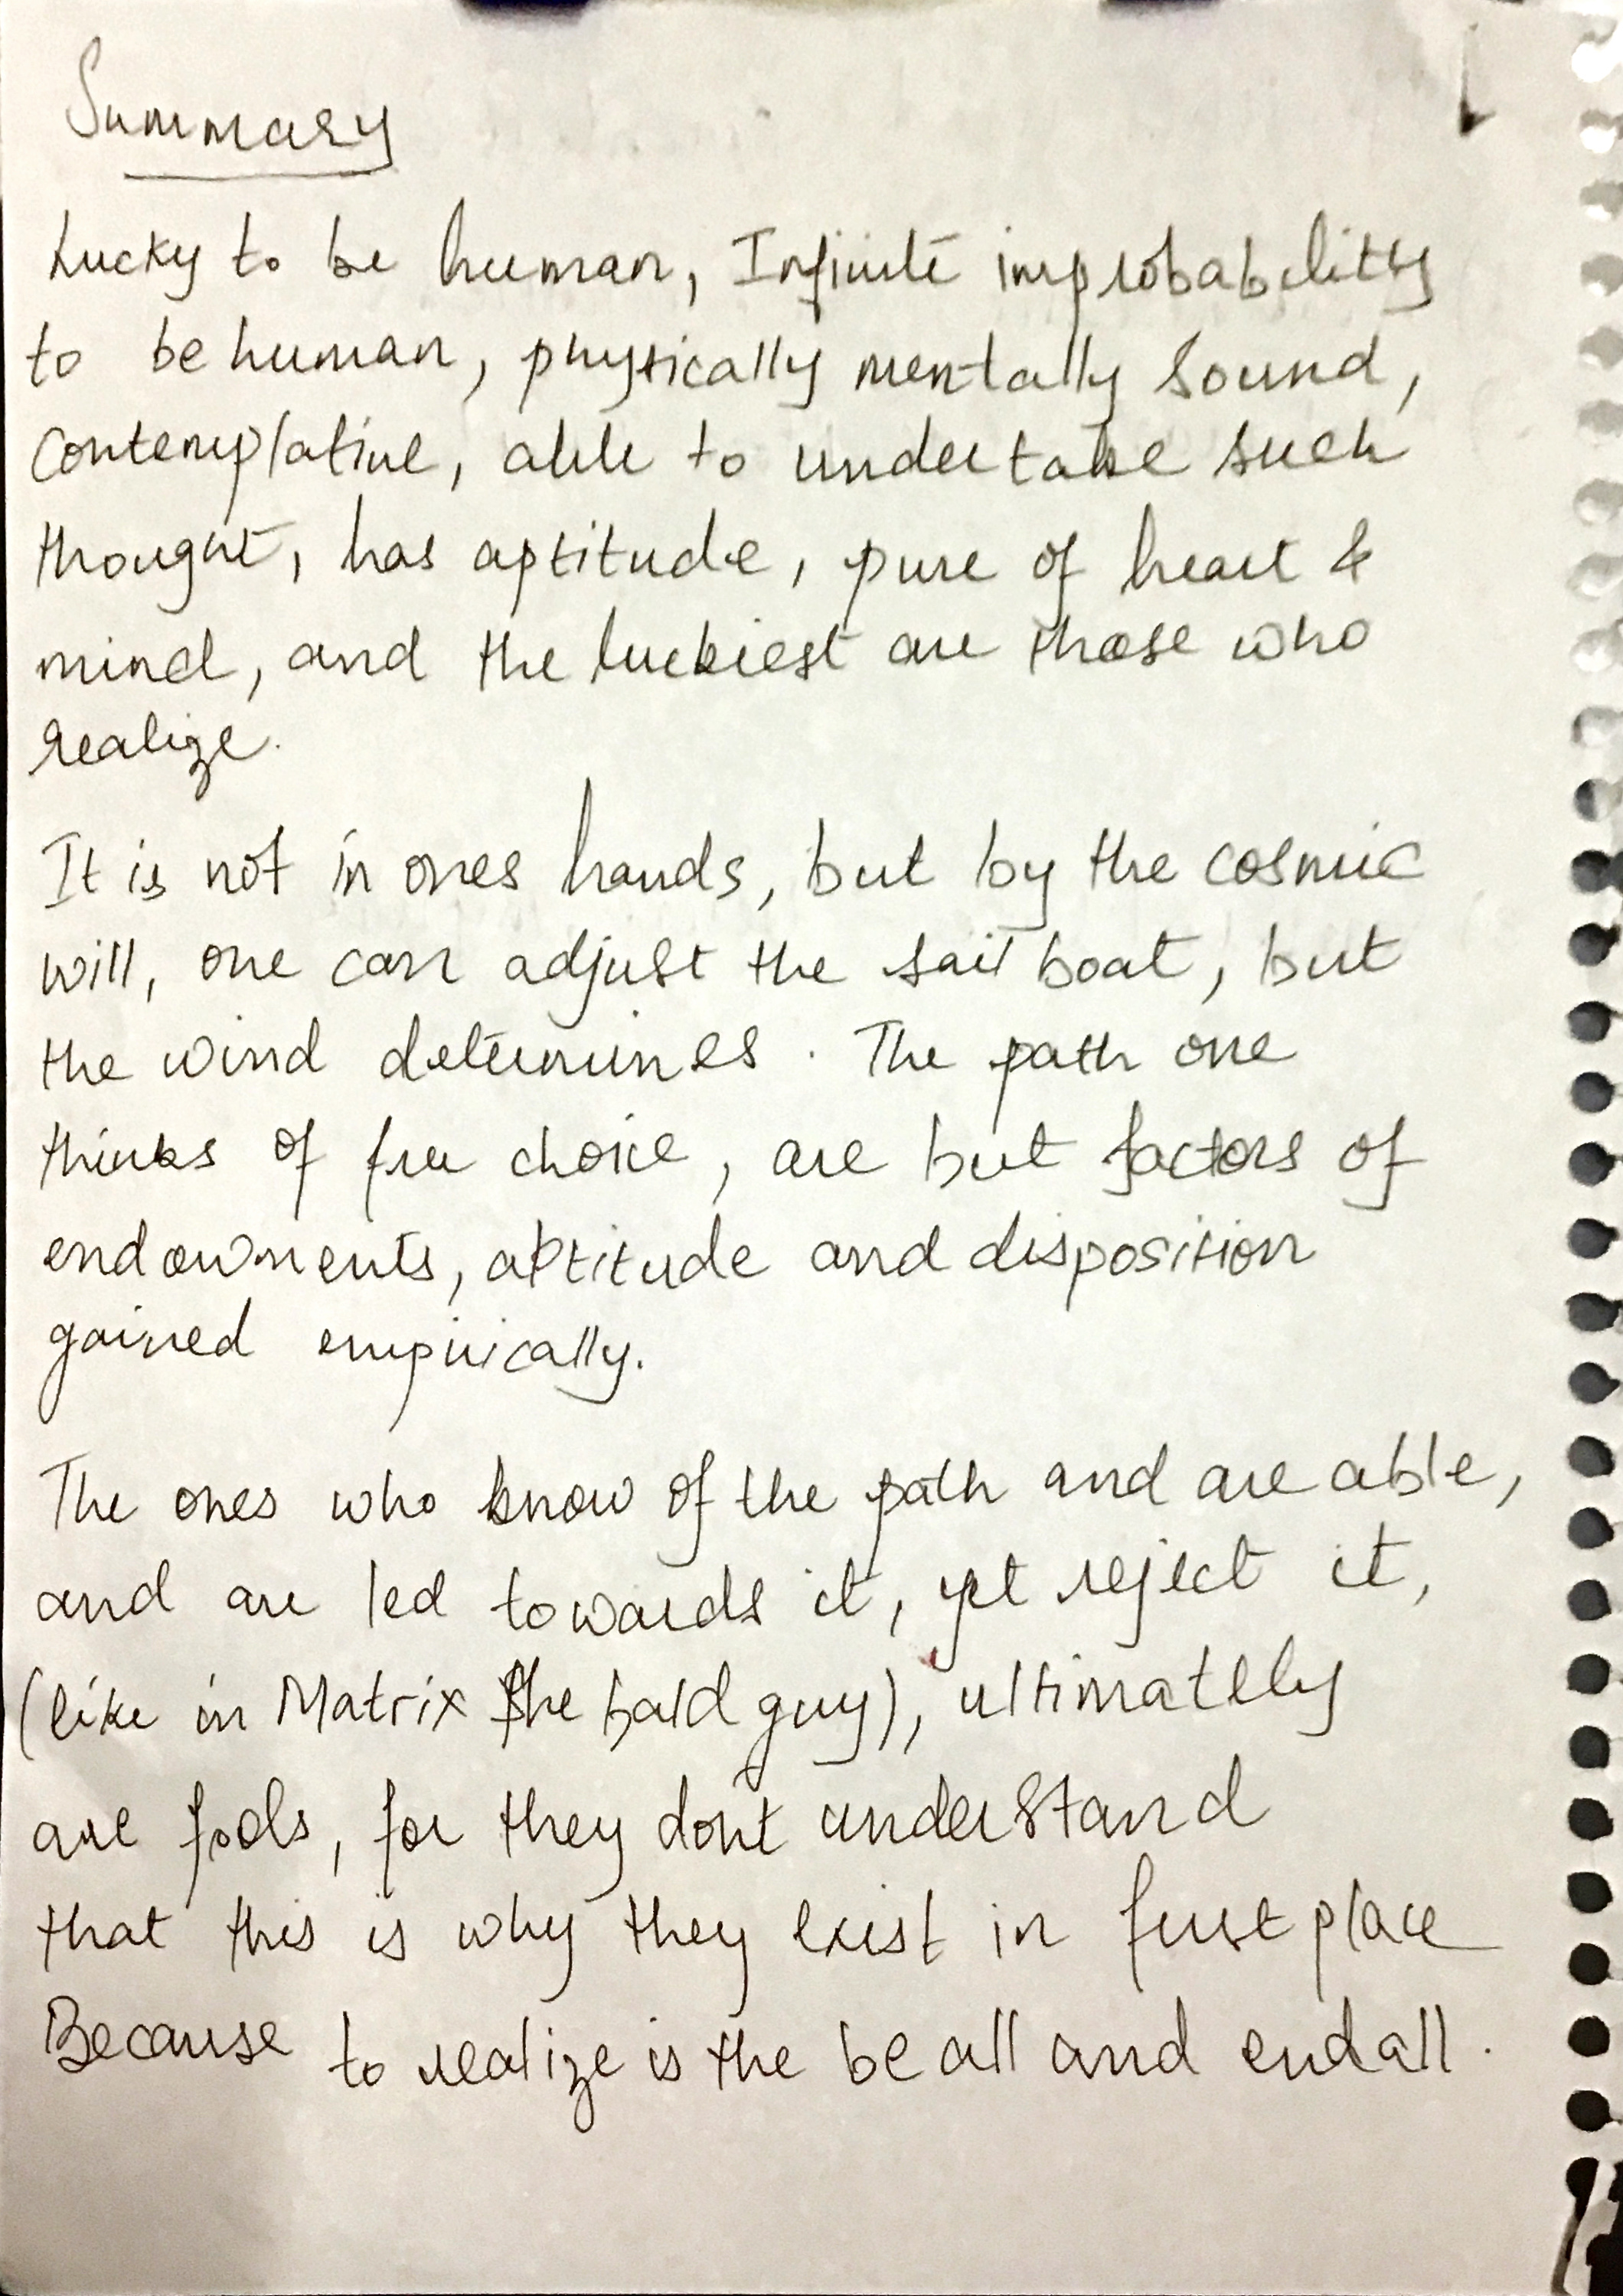 Summary
Lucky to be human, Infinite improbability
to be human, physically mentally sound,
Contemplative, able to undertake such
thought, has aptitude, pure of heart &
mind, and the luckiest are those who
realize.
It is not in ones hands, but by the cosmic
will, one can adjust the sail boat, but
the wind determines. The path one
thinks of free choice, are but factors of
endowments, aptitude and disposition
gained empirically.
The ones who know of the path and are able,
and are led towards it, yet reject it,
(like in Matrix the bald guy), ultimately
are fools, for they dont understand
that this is why they exist in first place
Because to realize is the be all and end all.